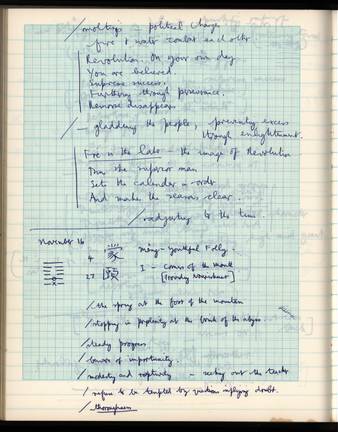 / moltings political change
- fire & water combat each other
Revolution. On your own day
You are believed.
Supreme success.
Furthering through perseverance.
Remorse disappears.
/ - gladdening the people, preventing excess
through enlightenment.
Fire in the lake - the image of Revolution
Thus the superior man
Sets the calendar in order
And makes the seasons clear.
/ readjusting to the time.
November 16
4 蒙 Mêng - Youthful Folly.
27 頤 I - Corners of the mouth
[Providing Nourishment]
/ the spring at the foot of the mountain
/ stopping in perplexity at the brink of the abyss
/ steady progress
/ of importunity.
/ modesty and receptivity - seeking out the teacher
/ refuse to be tempted by questions implying doubt.
/ thoroughness